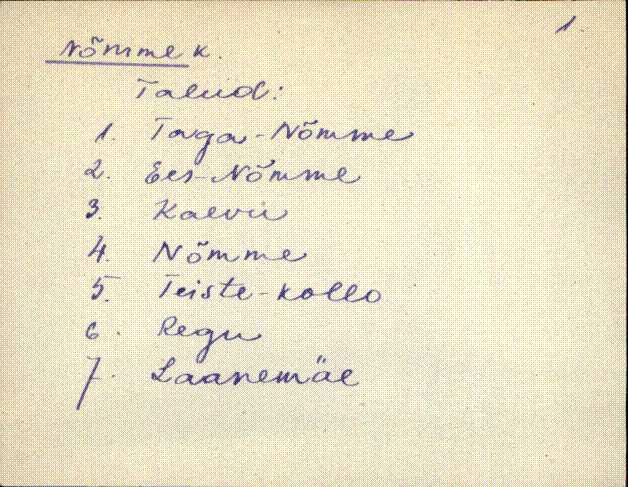 1.
Nõmme k.
Talud:
1. Taga-Nõmme
2. Ees-Nõmme
3. Kaevu
4. Nõmme
5. Teiste-Kollo
6. Regu
7. Laanemäe